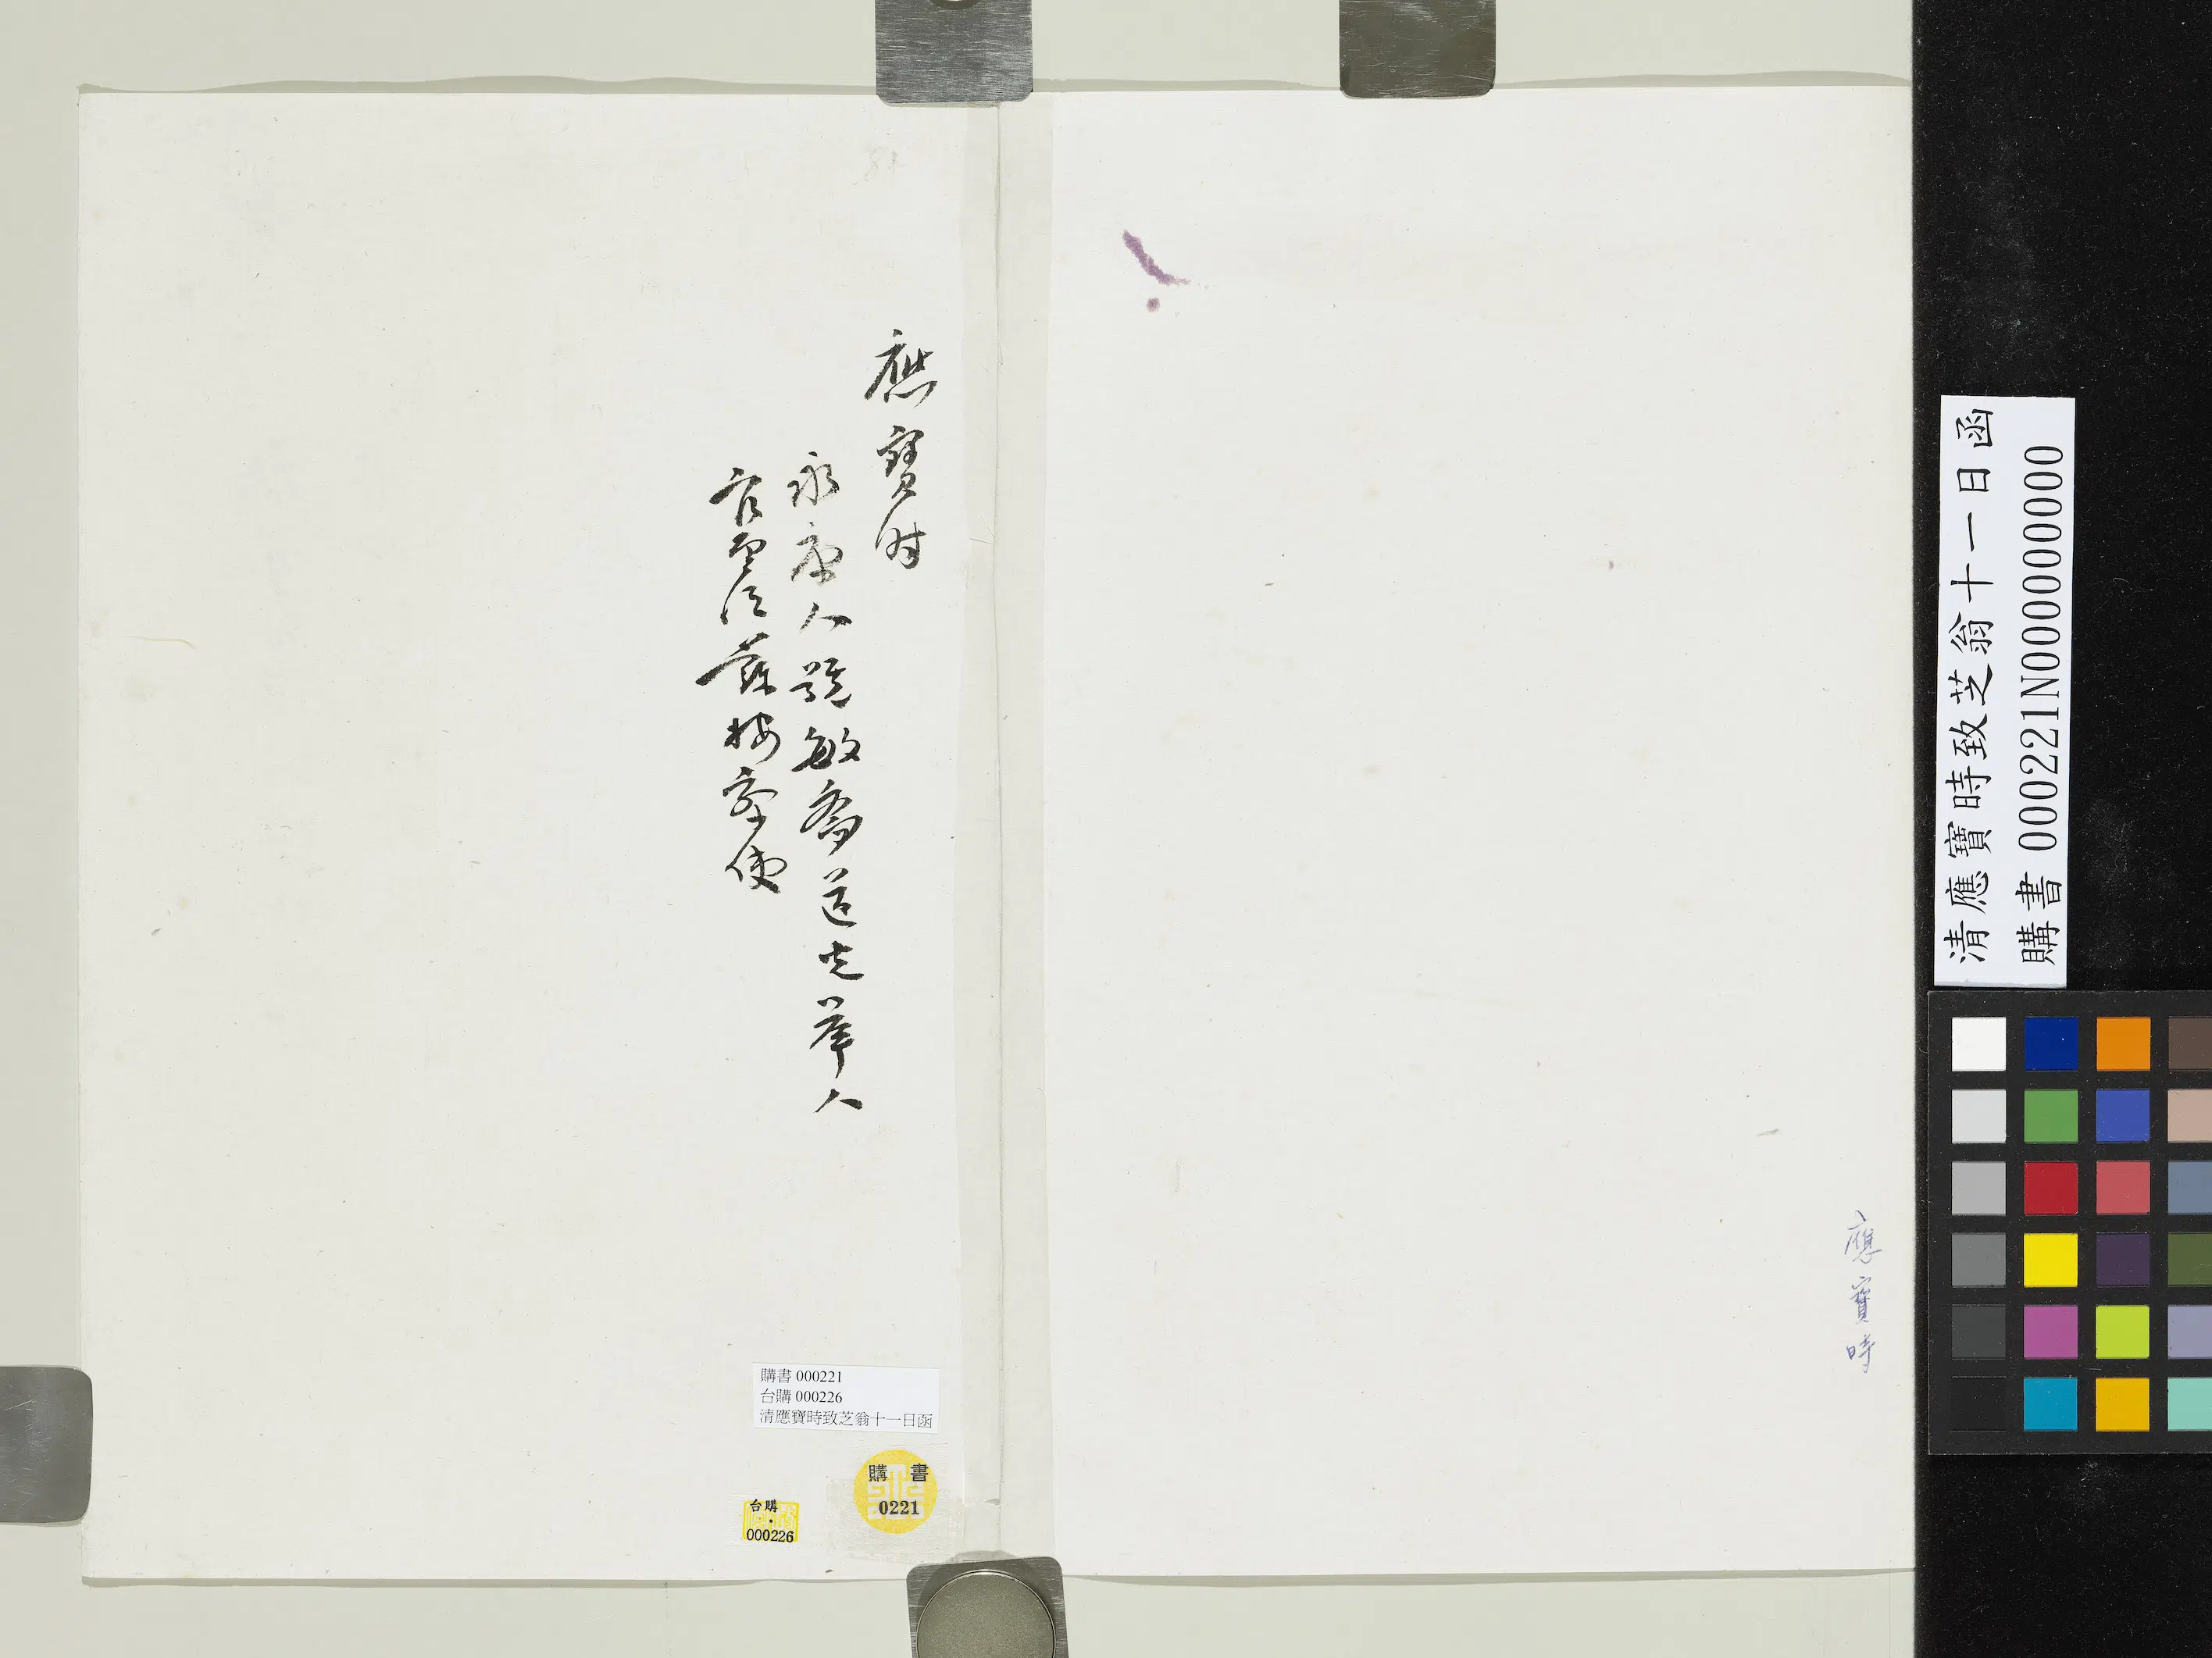 清應寶時致芝翁十一日函
購書 000221N000000000
應寶時
應寶时
永康人號敏齋道光舉人
官至江蘇按察使
購書 000221
台購 000226
清應寶時致芝翁十一日函
購 書
0221
台購
000226